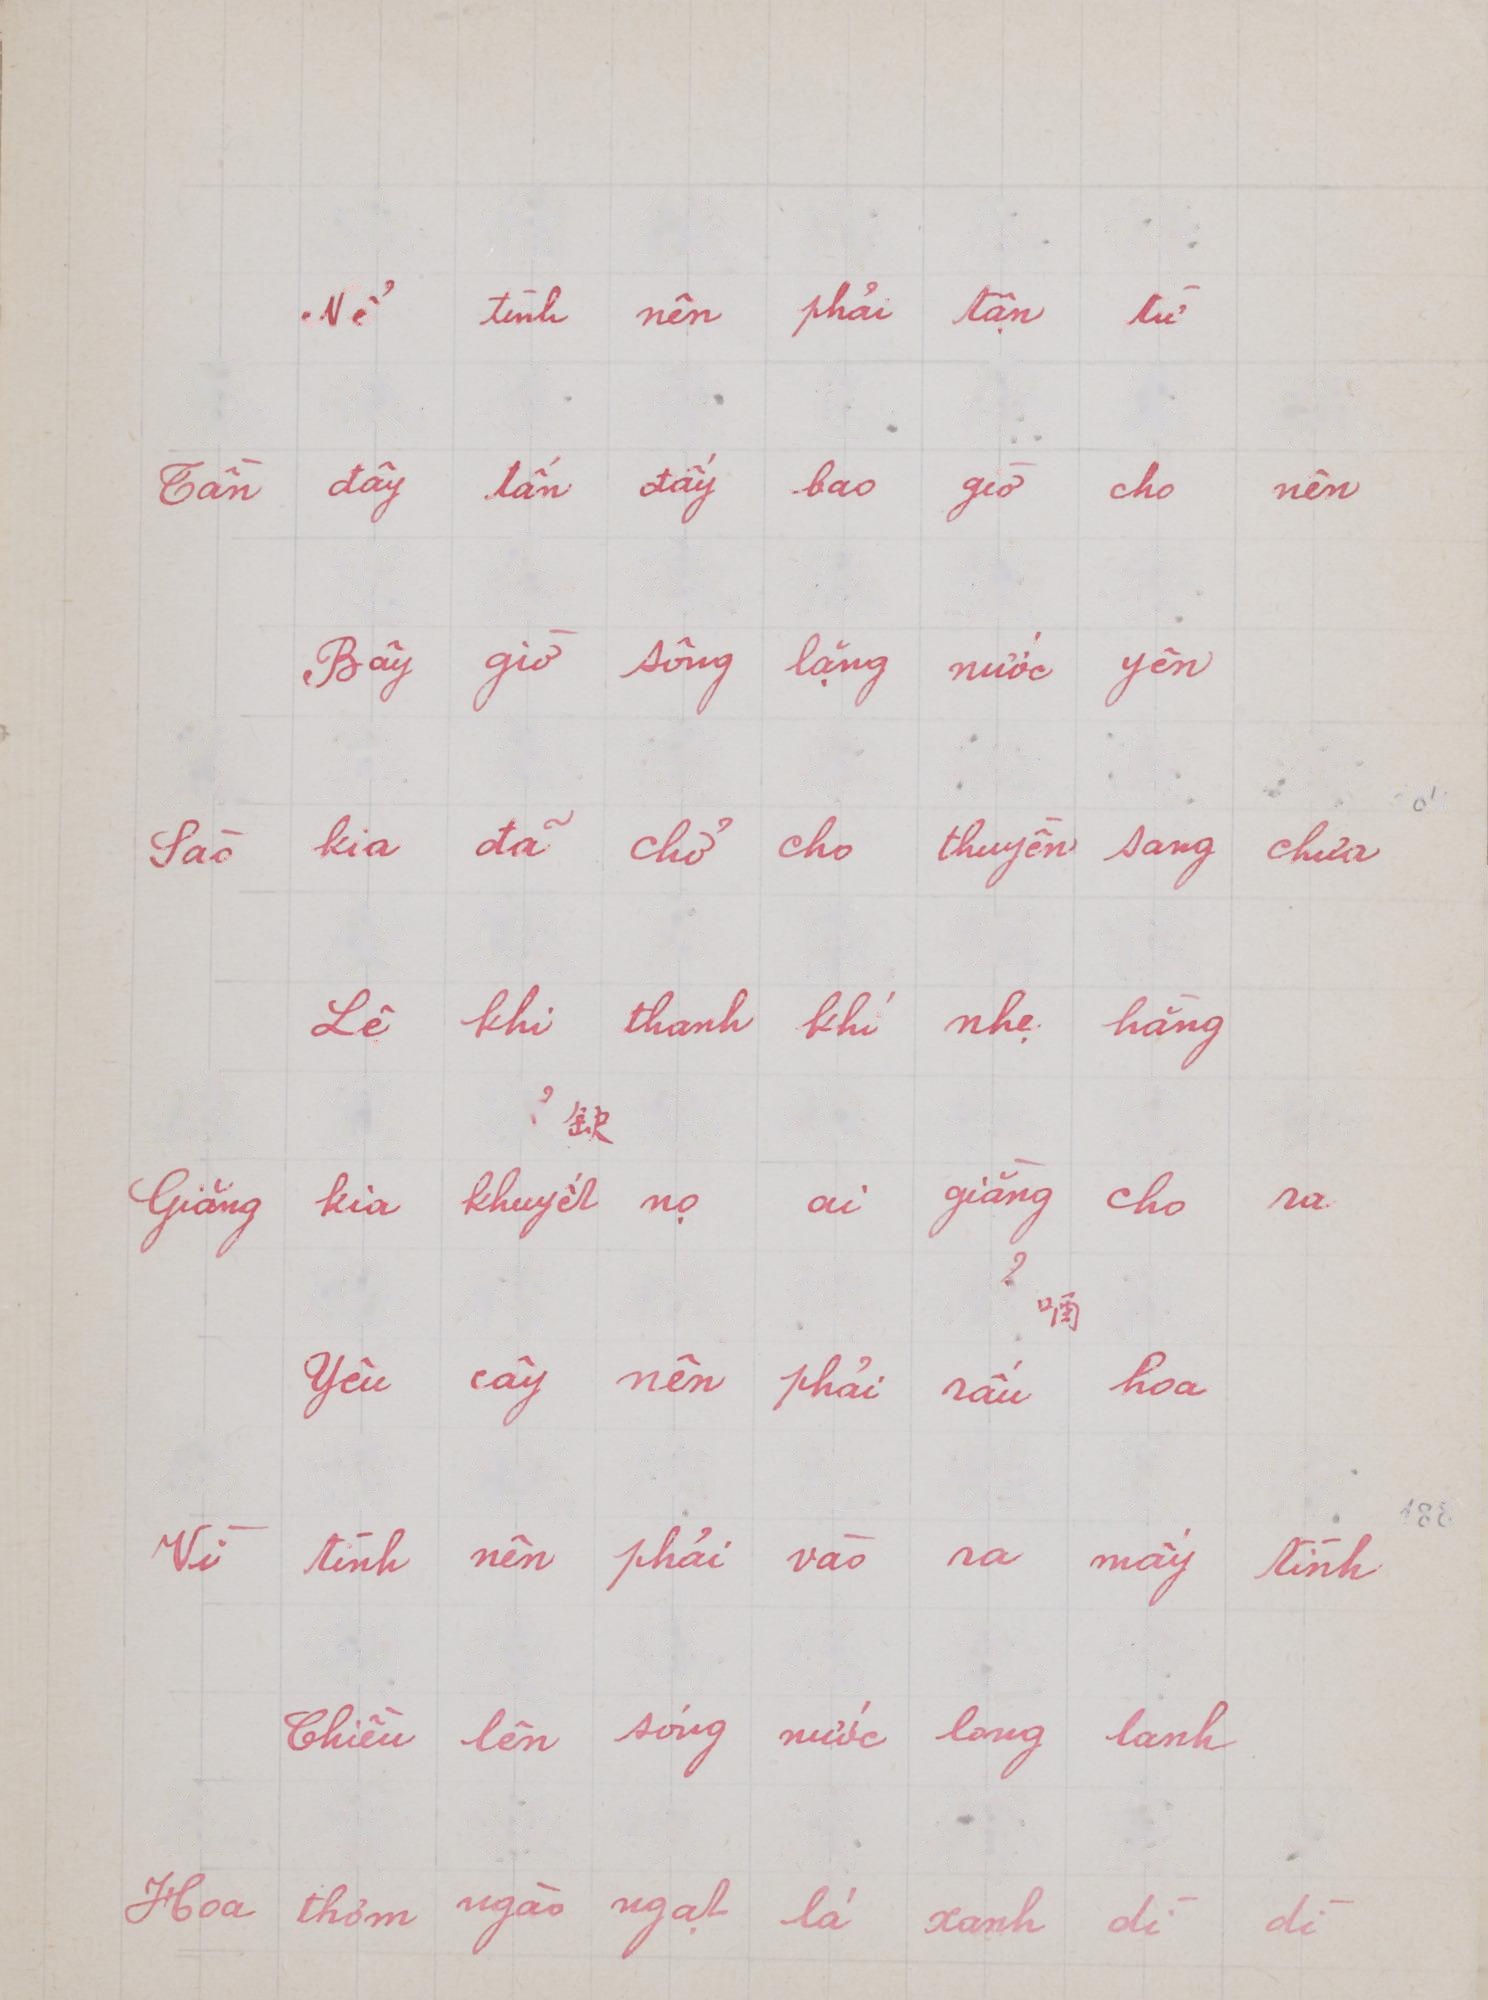 Nể tình nên phải tận từ
Tần đây tấn đấy bao giờ cho nên
Bây giờ sông lặng nước yên
Sào kia đã chở cho thuyền sang chưa
Lê khi thanh khí nhẹ hằng
? 缺
Giăng kia khuyết nọ ai giằng cho ra
?
Yêu cây nên phải rấu hoa
Vì tình nên phải vào ra mấy tình
Chiều lên sóng nước long lanh
Hoa thơm ngào ngạt lá xanh dì dì